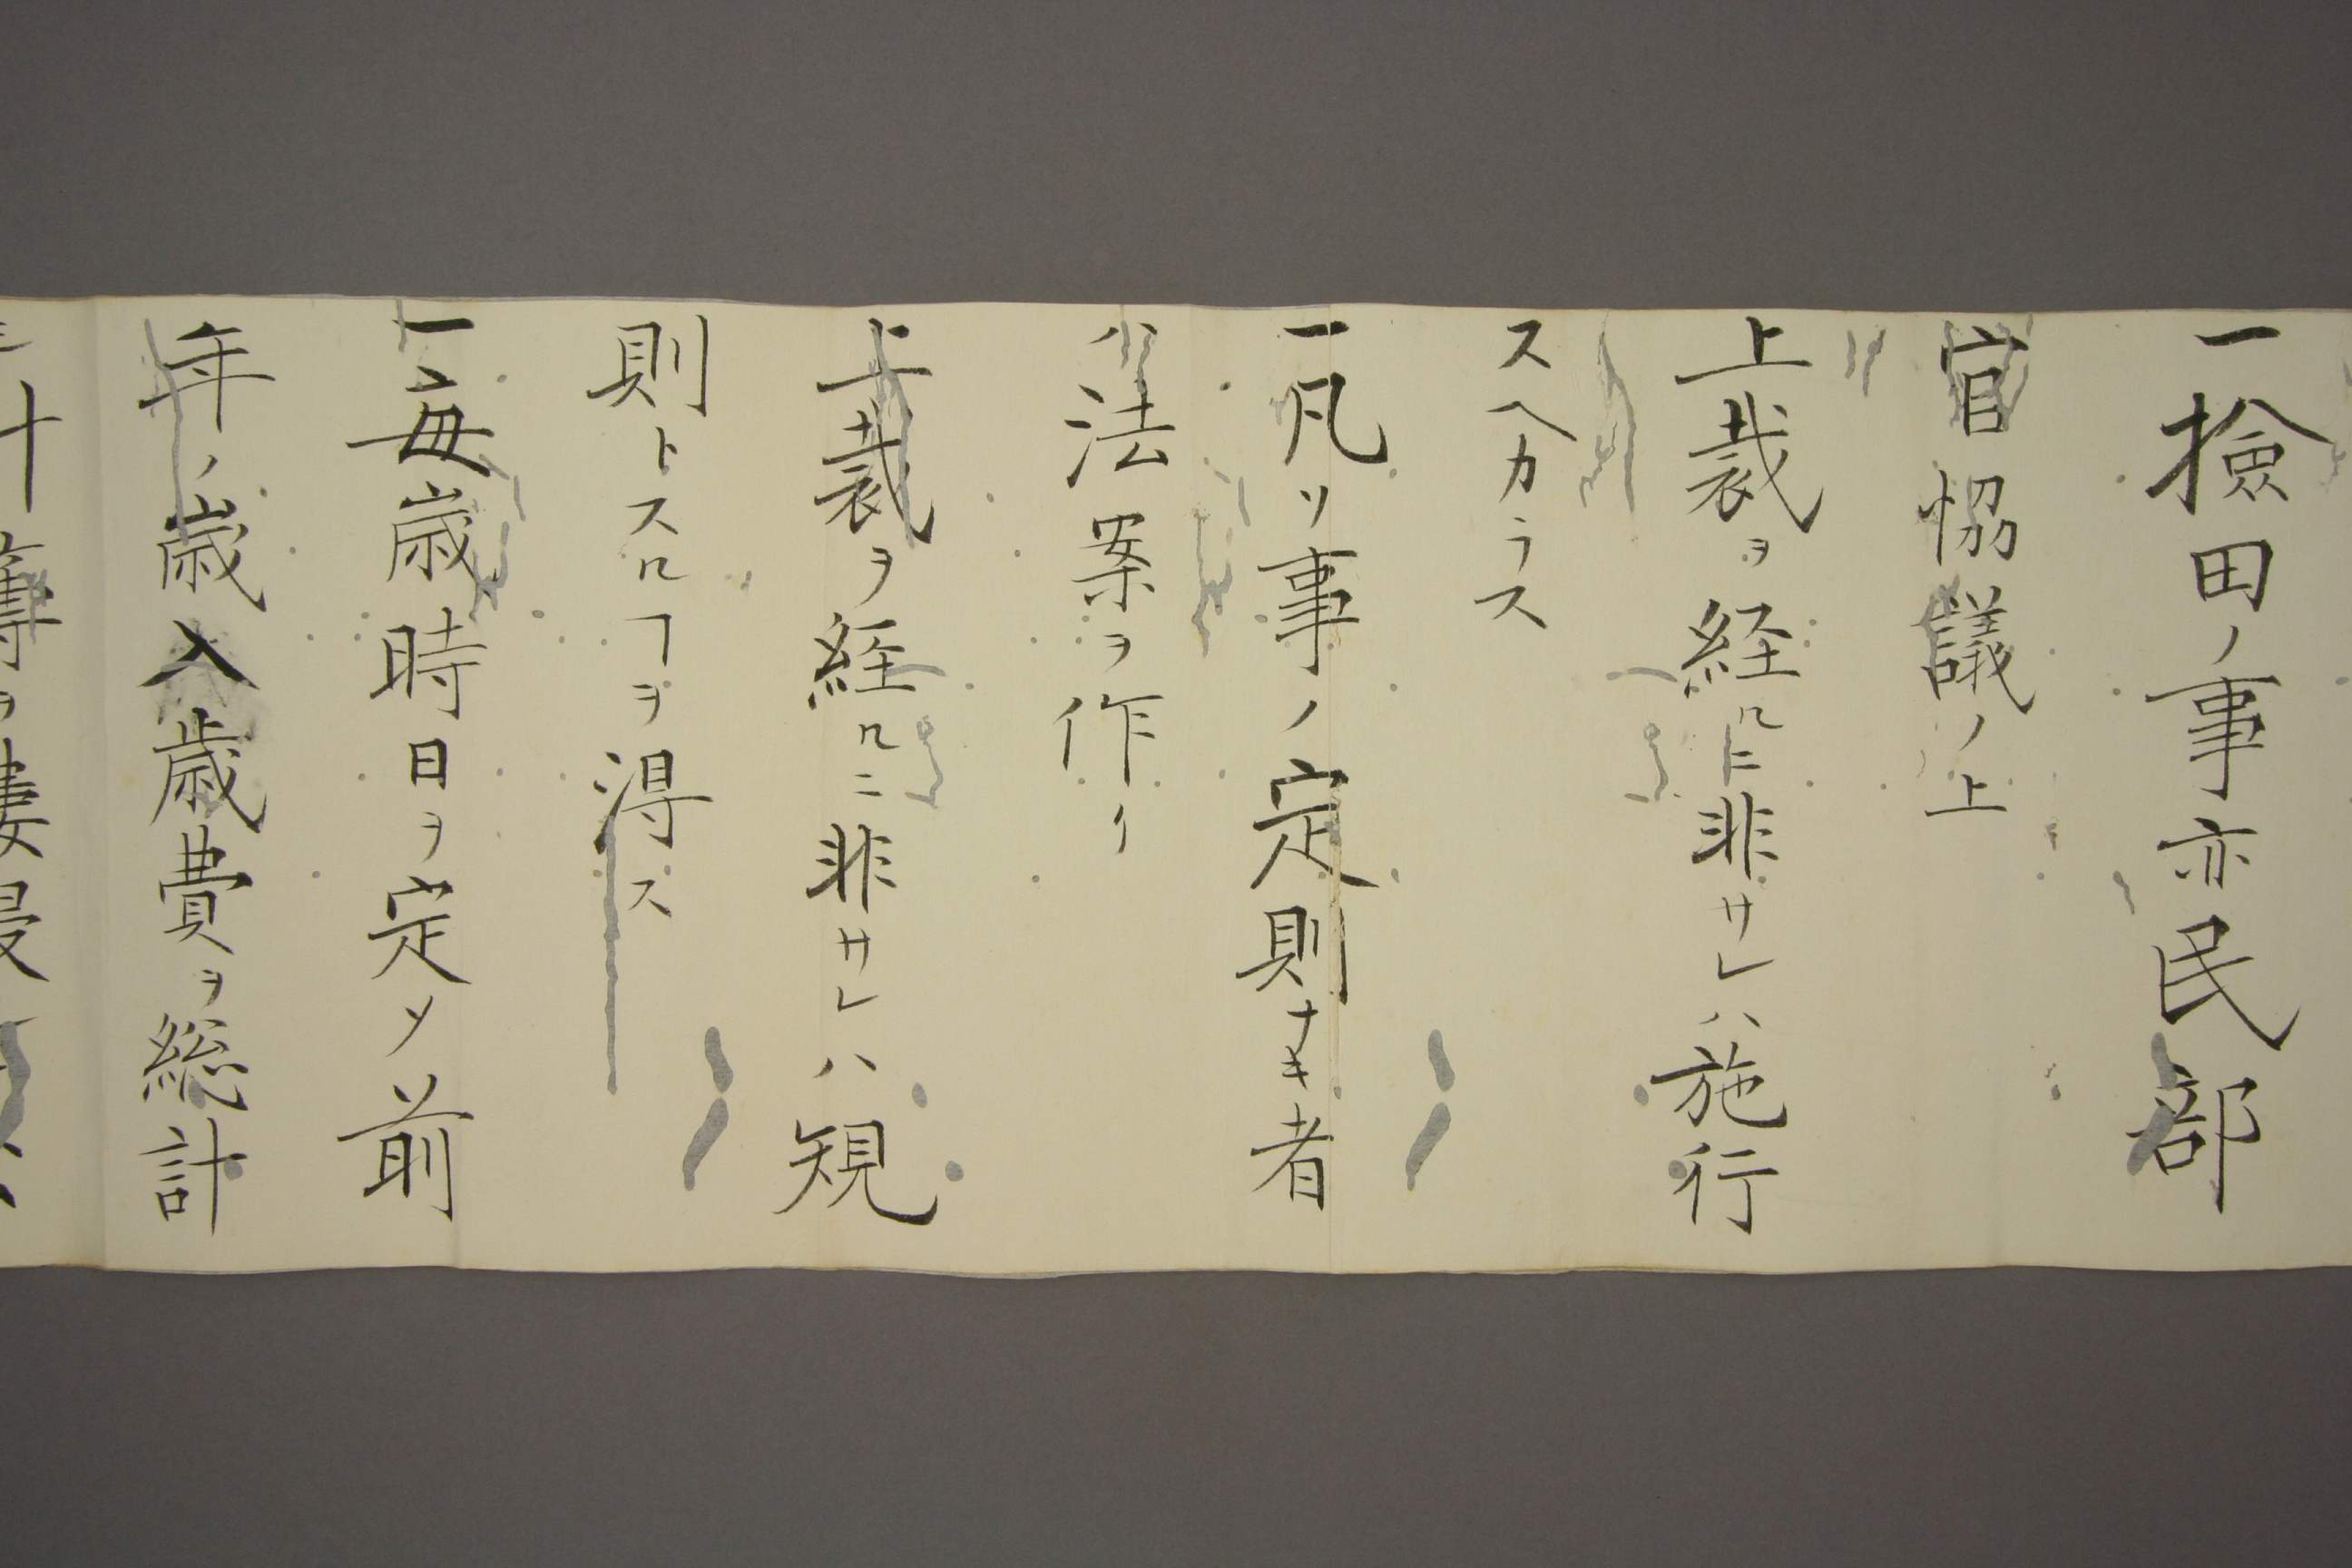 一撿田ノ事亦民部
官恊議ノ上
上裁ヲ経ルニ非サレハ施行
スヘカラス
一凡ソ事ノ定則ナキ者
ハ法案ヲ作リ
上裁ヲ経ルニ非サレハ規
則トスルヿヲ得ス
一毎歳時日ヲ定メ前
年ノ歳入歳費ヲ総計